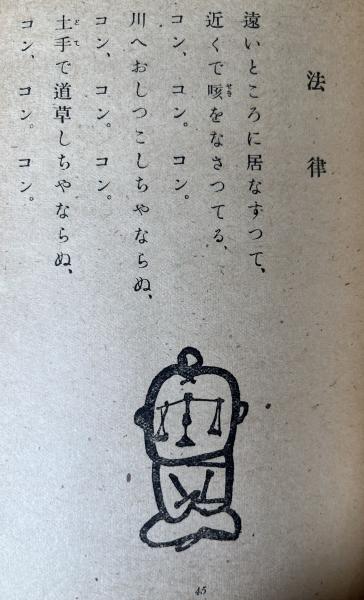 法律
遠いところに居なすつて、
近くで咳をなさつてる、
コン、コン。コン。
川へおしつこしちやならぬ、
コン、コン。コン。
土手で道草しちやならぬ、
コン、コン。コン。
45